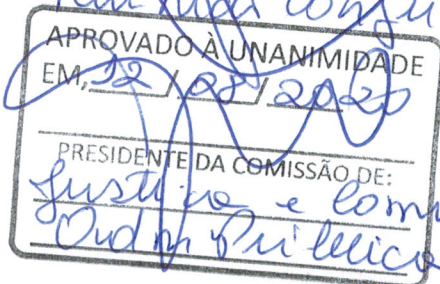 APROVADO À UNANIMIDADE
EM, 12 / 08 / 2020
PRESIDENTE DA COMISSÃO DE:
Justiça e Com
Ordem Pública